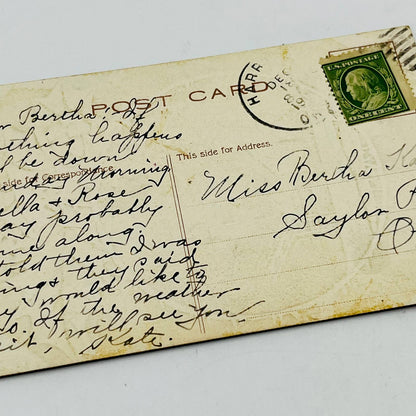 POST CARD
This side for Address.
side for Correspondence
Bertha: If
thing happens
be down
morning
ella & Rose
ay probably
me along.
told them I was
ing & they said
would like to
If the weather
will see you
Kate.
HARR
DEC
U.S. POSTAGE
ONE CENT
Miss Bertha K
Saylor